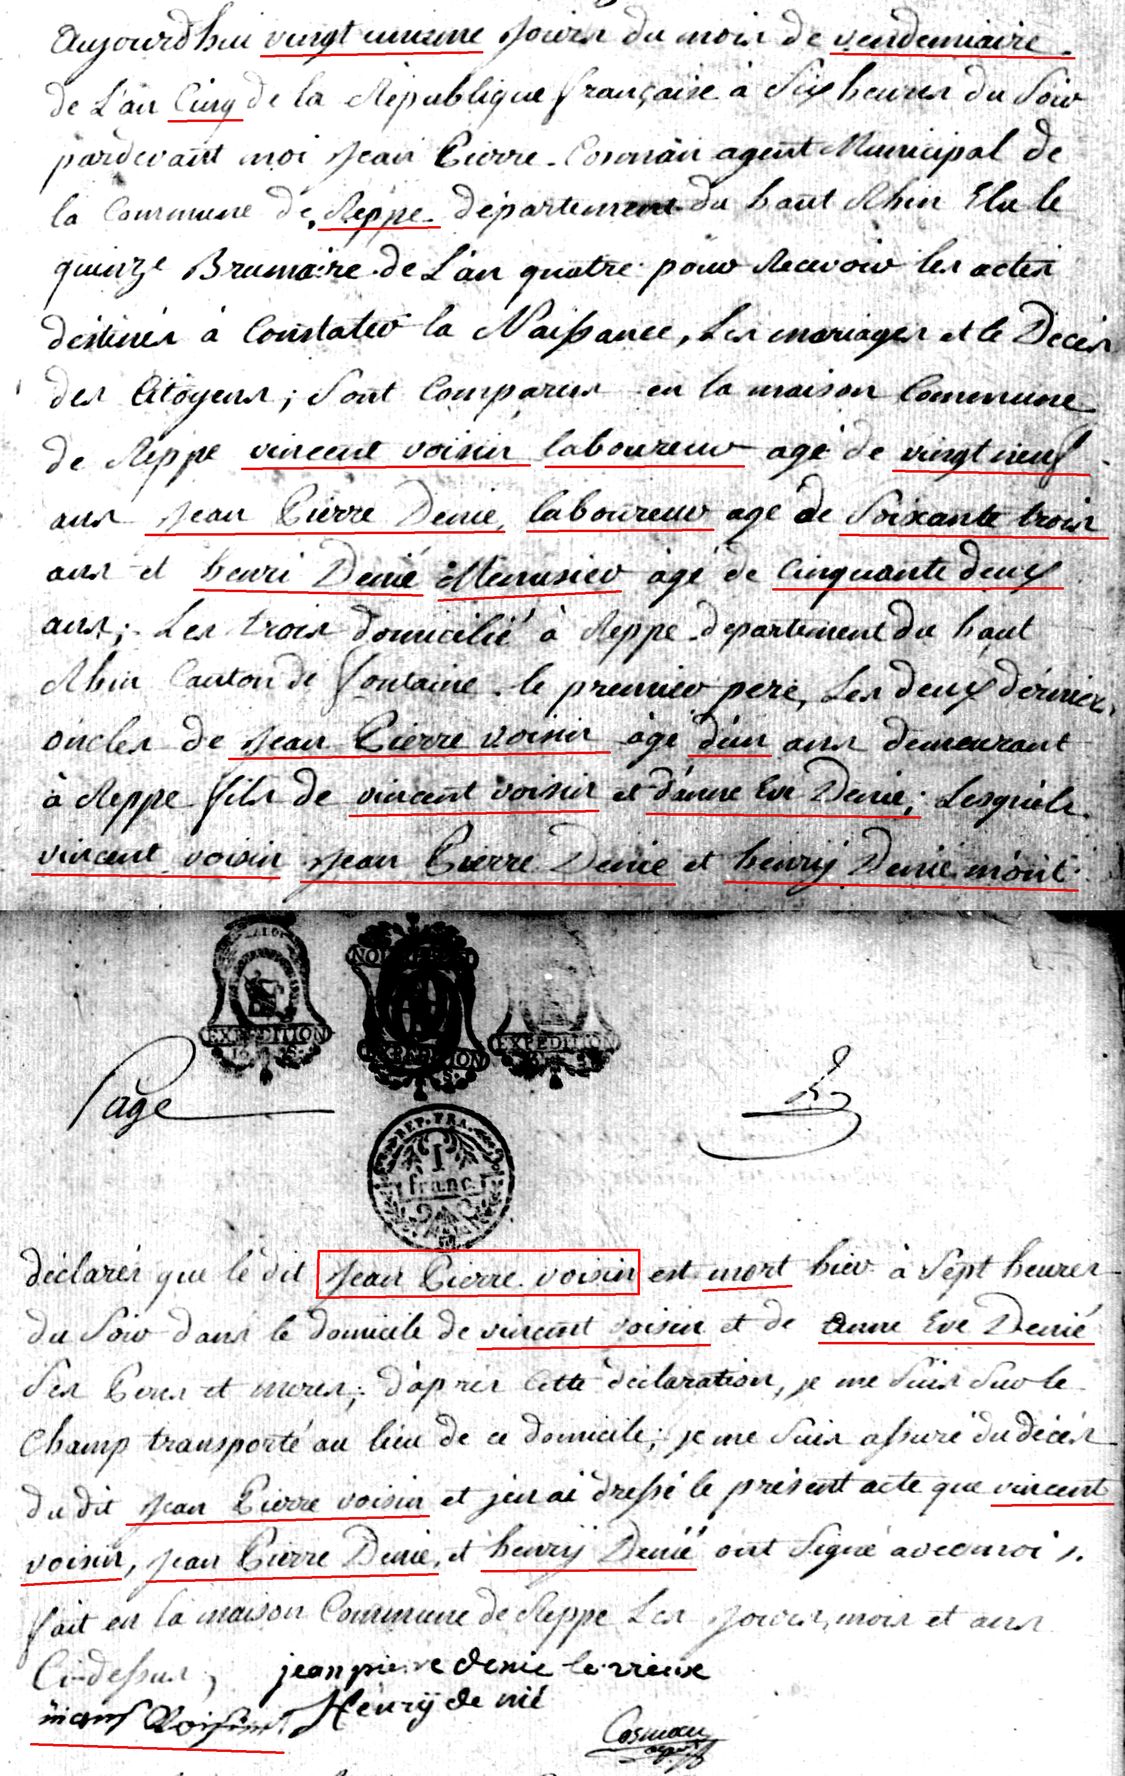 Aujourdhui vingt unieme Jours du mois de vendemiaire.
de L'an Cinq de la République française à Six heures du Soir
pardevant moi Jean Pierre Cosman agent Municipal de
la Commune de Reppe département du haut Rhin Elu le
quinze Brumaire de L'an quatre pour Recevoir les actes
destinés à Constater la Naissance, Les mariages et le Décès
des Citoyens; Sont Comparus en la maison Commune
de Reppe vincent voisin laboureur agé de vingt neuf
ans Jean Pierre Denié, laboureur agé de Soixante trois
ans et henri Denié Menusier âgé de Cinquante deux
ans; Les trois domicilié à Reppe département du haut
Rhin Canton de fontaine. le premier pere, Les deux dérniers
oncles de Jean Pierre voisin âgé d'un ans demeurant
à Reppe fils de vincent voisin et d'anne Eve Denié; Lesquels
vincent voisin Jean Pierre Denié et henrÿ Denié m'ont
EXPEDITION
EXPEDITION
EXPEDITION
Page
REP. FRA.
1
franc
déclarés que le dit Jean Pierre voisin est mort hier à Sépt heures
du Soir dans le domicile de vincent voisin et de Anne Eve Denié
Ses Peres et meres; d'aprés Cette déclaration, je me Suis Sur le
Champ transporté au lieu de ce domicile; je me Suis assuré du décés
du dit Jean Pierre voisin et j'en ai dressé le présent acte que vincent
voisin, Jean Pierre Denié, et henrÿ Denié ont Signé avec moi.
fait en la maison Commune de Reppe Les Jours, mois et ans
Ci-dessus, jean pierre denie le vieux
Voisin Henrÿ de nié
Cosman
agent